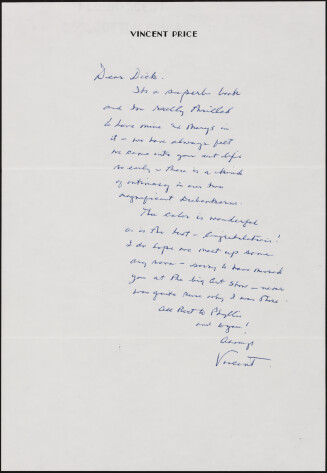 VINCENT PRICE
Dear Dick.
Its a superb book
and Im really thrilled
to have mine
it - we have always felt
we came into your art life
so early - there is a
of in our two
magnificent Diebenkorns.
The color is wonderful
as is the text - Congratulations!
I do hope we meet up some
day soon - sorry to have missed
you at the big Art Show - never
was quite sure why I was there.
All Best to Phyllis
and to you!
Always
Vincent